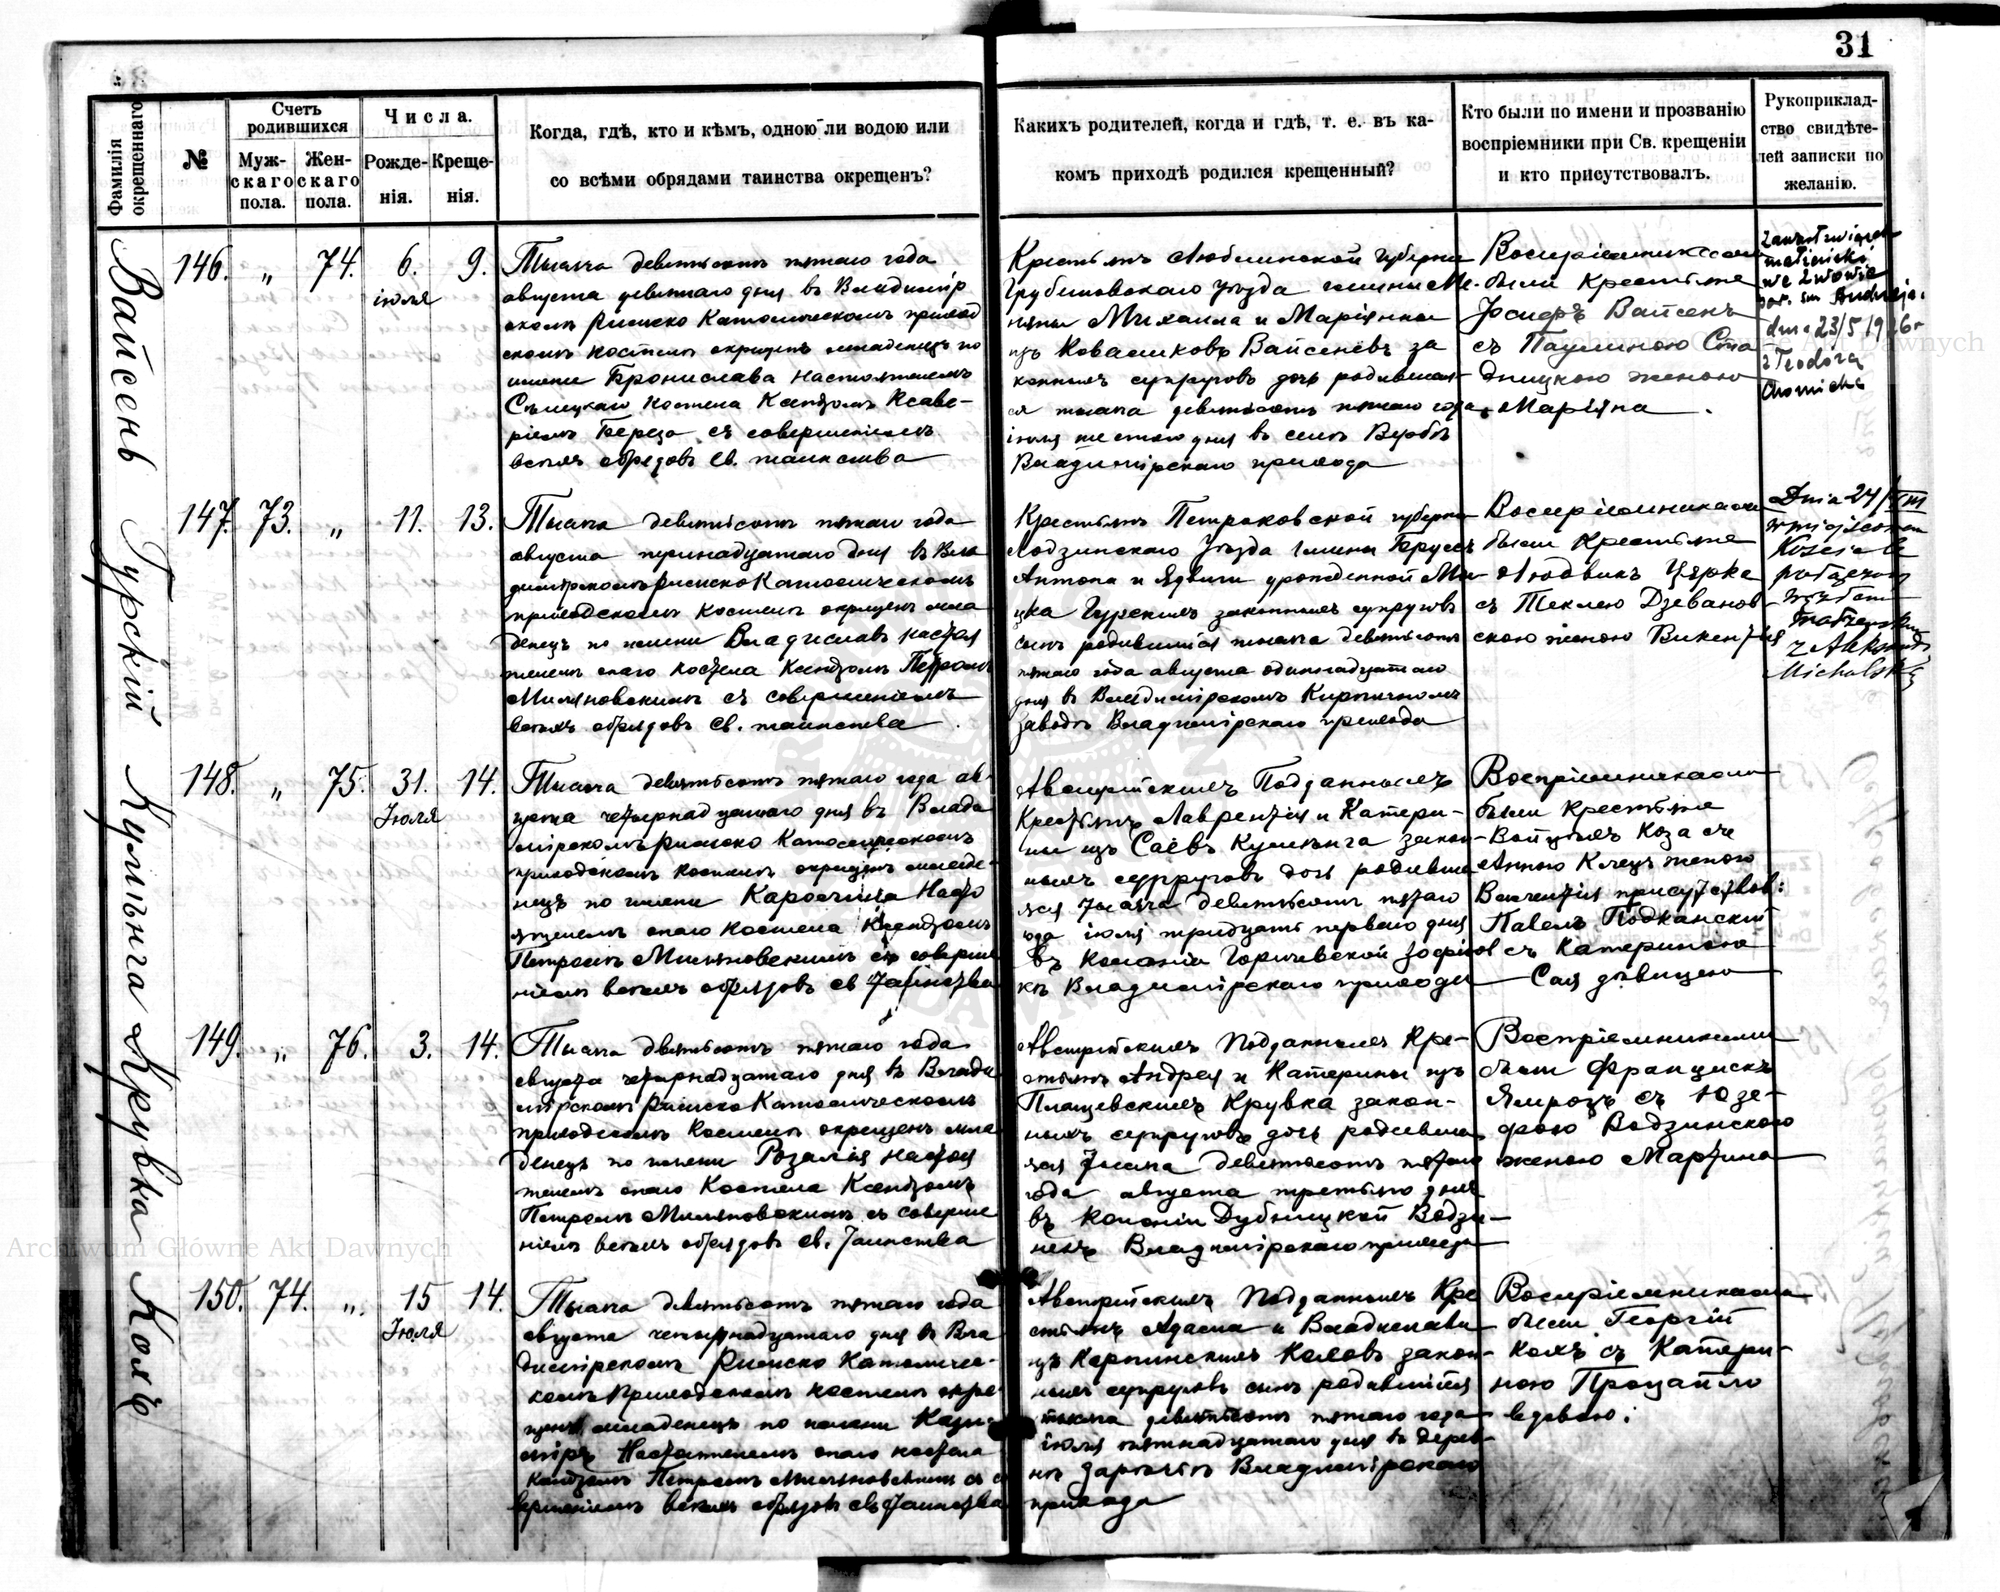 31
Фамилія окрещеннаго.
№
Счетъ родившихся
Мужскаго пола.
Женскаго пола.
Числа.
Рожденія.
Крещенія.
Когда, гдѣ, кто и кѣмъ, одною ли водою или
со всѣми обрядами таинства окрещенъ?
Какихъ родителей, когда и гдѣ, т. е. въ ка-
комъ приходѣ родился крещенный?
Кто были по имени и прозванію
воспріемники при Св. крещеніи
и кто присутствовалъ.
Рукоприклад-
ство свидѣте-
лей записки по
желанію.
Вайсенъ
146. „ 74. 6. 9.
іюля
Тысяча девятьсотъ пятаго года
августа девятаго дня въ Владимір
скомъ Римско Католическомъ приход
скомъ костелѣ окрещенъ младенецъ по
имени Бронислава Настоятелемъ
Сѣлецкаго Костела Ксендзомъ Ксаве-
ріемъ Береза съ совершеніемъ
всѣхъ обрядовъ Св. таинства
Крестьянъ Люблинской губерніи
Грубешовскаго уѣзда гмины Ме-
няны Михаила и Маріянны
изъ Ковашковъ Вайсеневъ за
конныхъ супруговъ дочь родившая-
ся тысяча девятьсотъ пятаго года
іюля шестаго дня въ селѣ Верба
Владимірскаго прихода
Воспріемниками
были Крестьяне
Іосифъ Вайсенъ
съ Паулиною Ста
дницкою женою
Маріяна.
Zawarł związek
małżeński
we Lwowie
par. św. Andrzeja.
dnia 23/5 1926 r
z Teodorą
Chomicka
Гурскій
147. 73. „ 11. 13.
Тысяча девятьсотъ пятаго года
августа тринадцатаго дня въ Вла
димірскомъ Римско Католическомъ
приходскомъ костелѣ окрещенъ мла
денецъ по имени Владиславъ Настоя
телемъ онаго Костела Ксендзомъ Петромъ
Миляновскимъ съ совершеніемъ
всѣхъ обрядовъ Св. таинства.
Крестьянъ Петроковской губерніи
Лодзинскаго Уѣзда гмины
Антона и Ядвиги урожденной Ми
цка Гурскихъ законныхъ супруговъ
сынъ родившійся тысяча девятьсотъ
пятаго года августа одинадцатаго
дня въ Владимірскомъ Кирпичномъ
заводѣ Владимірскаго прихода
Воспріемниками
были Крестьяне
Людвикъ
съ Теклею Дзеванов
скою женою Викентія
Dnia 24/VIII
w miejscowym
Kościele
z Aleksandrą
Michalską
Кульѣнга
148. „ 75. 31. 14.
Іюля
Тысяча девятьсотъ пятаго года ав-
густа четырнадцатаго дня въ Влади
мірскомъ Римско Католическомъ
приходскомъ костелѣ окрещенъ младе-
нецъ по имени Каролина Насто
ятелемъ онаго Костела Ксендзомъ
Петромъ Миляновскимъ съ соверше
ніемъ всѣхъ обрядовъ св Таинства
Австрійскихъ Подданныхъ
Крестьянъ Лаврентія и Катери-
ны изъ Саёвъ Кульѣнга закон-
ныхъ супруговъ дочь родивша
яся тысяча девятьсотъ пятаго
года іюля тридцать перваго дня
въ колоніи Горичевской Зофіов
кѣ Владимірскаго прихода
Воспріемниками
были крестьяне
Войцѣхъ Коза съ
Анною Клецъ женою
Валентія присутствов:
Павелъ Подканскій
съ Катериною
Сая дѣвицею
Крувка
149. „ 76. 3. 14.
Тысяча девятьсотъ пятаго года
августа четырнадцатаго дня въ Влади
мірскомъ Римско Католическомъ
приходскомъ Костелѣ окрещенъ мла
денецъ по имени Розалія Настоя
телемъ онаго Костела Ксендзомъ
Петромъ Миляновскимъ съ соверше
ніемъ всѣхъ обрядовъ св. Таинства
Австрійскихъ Подданныхъ Кре-
стьянъ Андрея и Катерины изъ
Плащевскихъ Крувка закон-
ныхъ супруговъ дочь родивша
яся тысяча девятьсотъ пятаго
года августа третьяго дня
въ колоніи Дубницкой Водзи-
некъ Владимірскаго прихода
Воспріемниками
были Францискъ
Ямрозъ съ Юзе-
фою Водзинскою
женою Мартина
Коль
150. 74. „ 15 14.
Іюля
Тысяча девятьсотъ пятаго года
августа четырнадцатаго дня въ Вла
димірскомъ Римско Католичес-
комъ Приходскомъ костелѣ окре-
щенъ младенецъ по имени Кази-
міръ Настоятелемъ онаго костела
Ксендзомъ Петромъ Миляновскимъ съ со
вершеніемъ всѣхъ обрядовъ св Таинства
Австрійскихъ Подданныхъ Кре
стьянъ Адама и Владиславы
изъ Карпинскихъ Колювъ закон-
ныхъ супруговъ сынъ родившійся
тысяча девятьсотъ пятаго года
іюля пятнадцатаго дня въ дерев-
нѣ Зарѣчіѣ Владимірскаго
прихода
Воспріемниками
были Георгій
Коль съ Катери-
ною Процайло
вдовою.
Archiwum Główne Akt Dawnych
Archiwum Główne Akt Dawnych